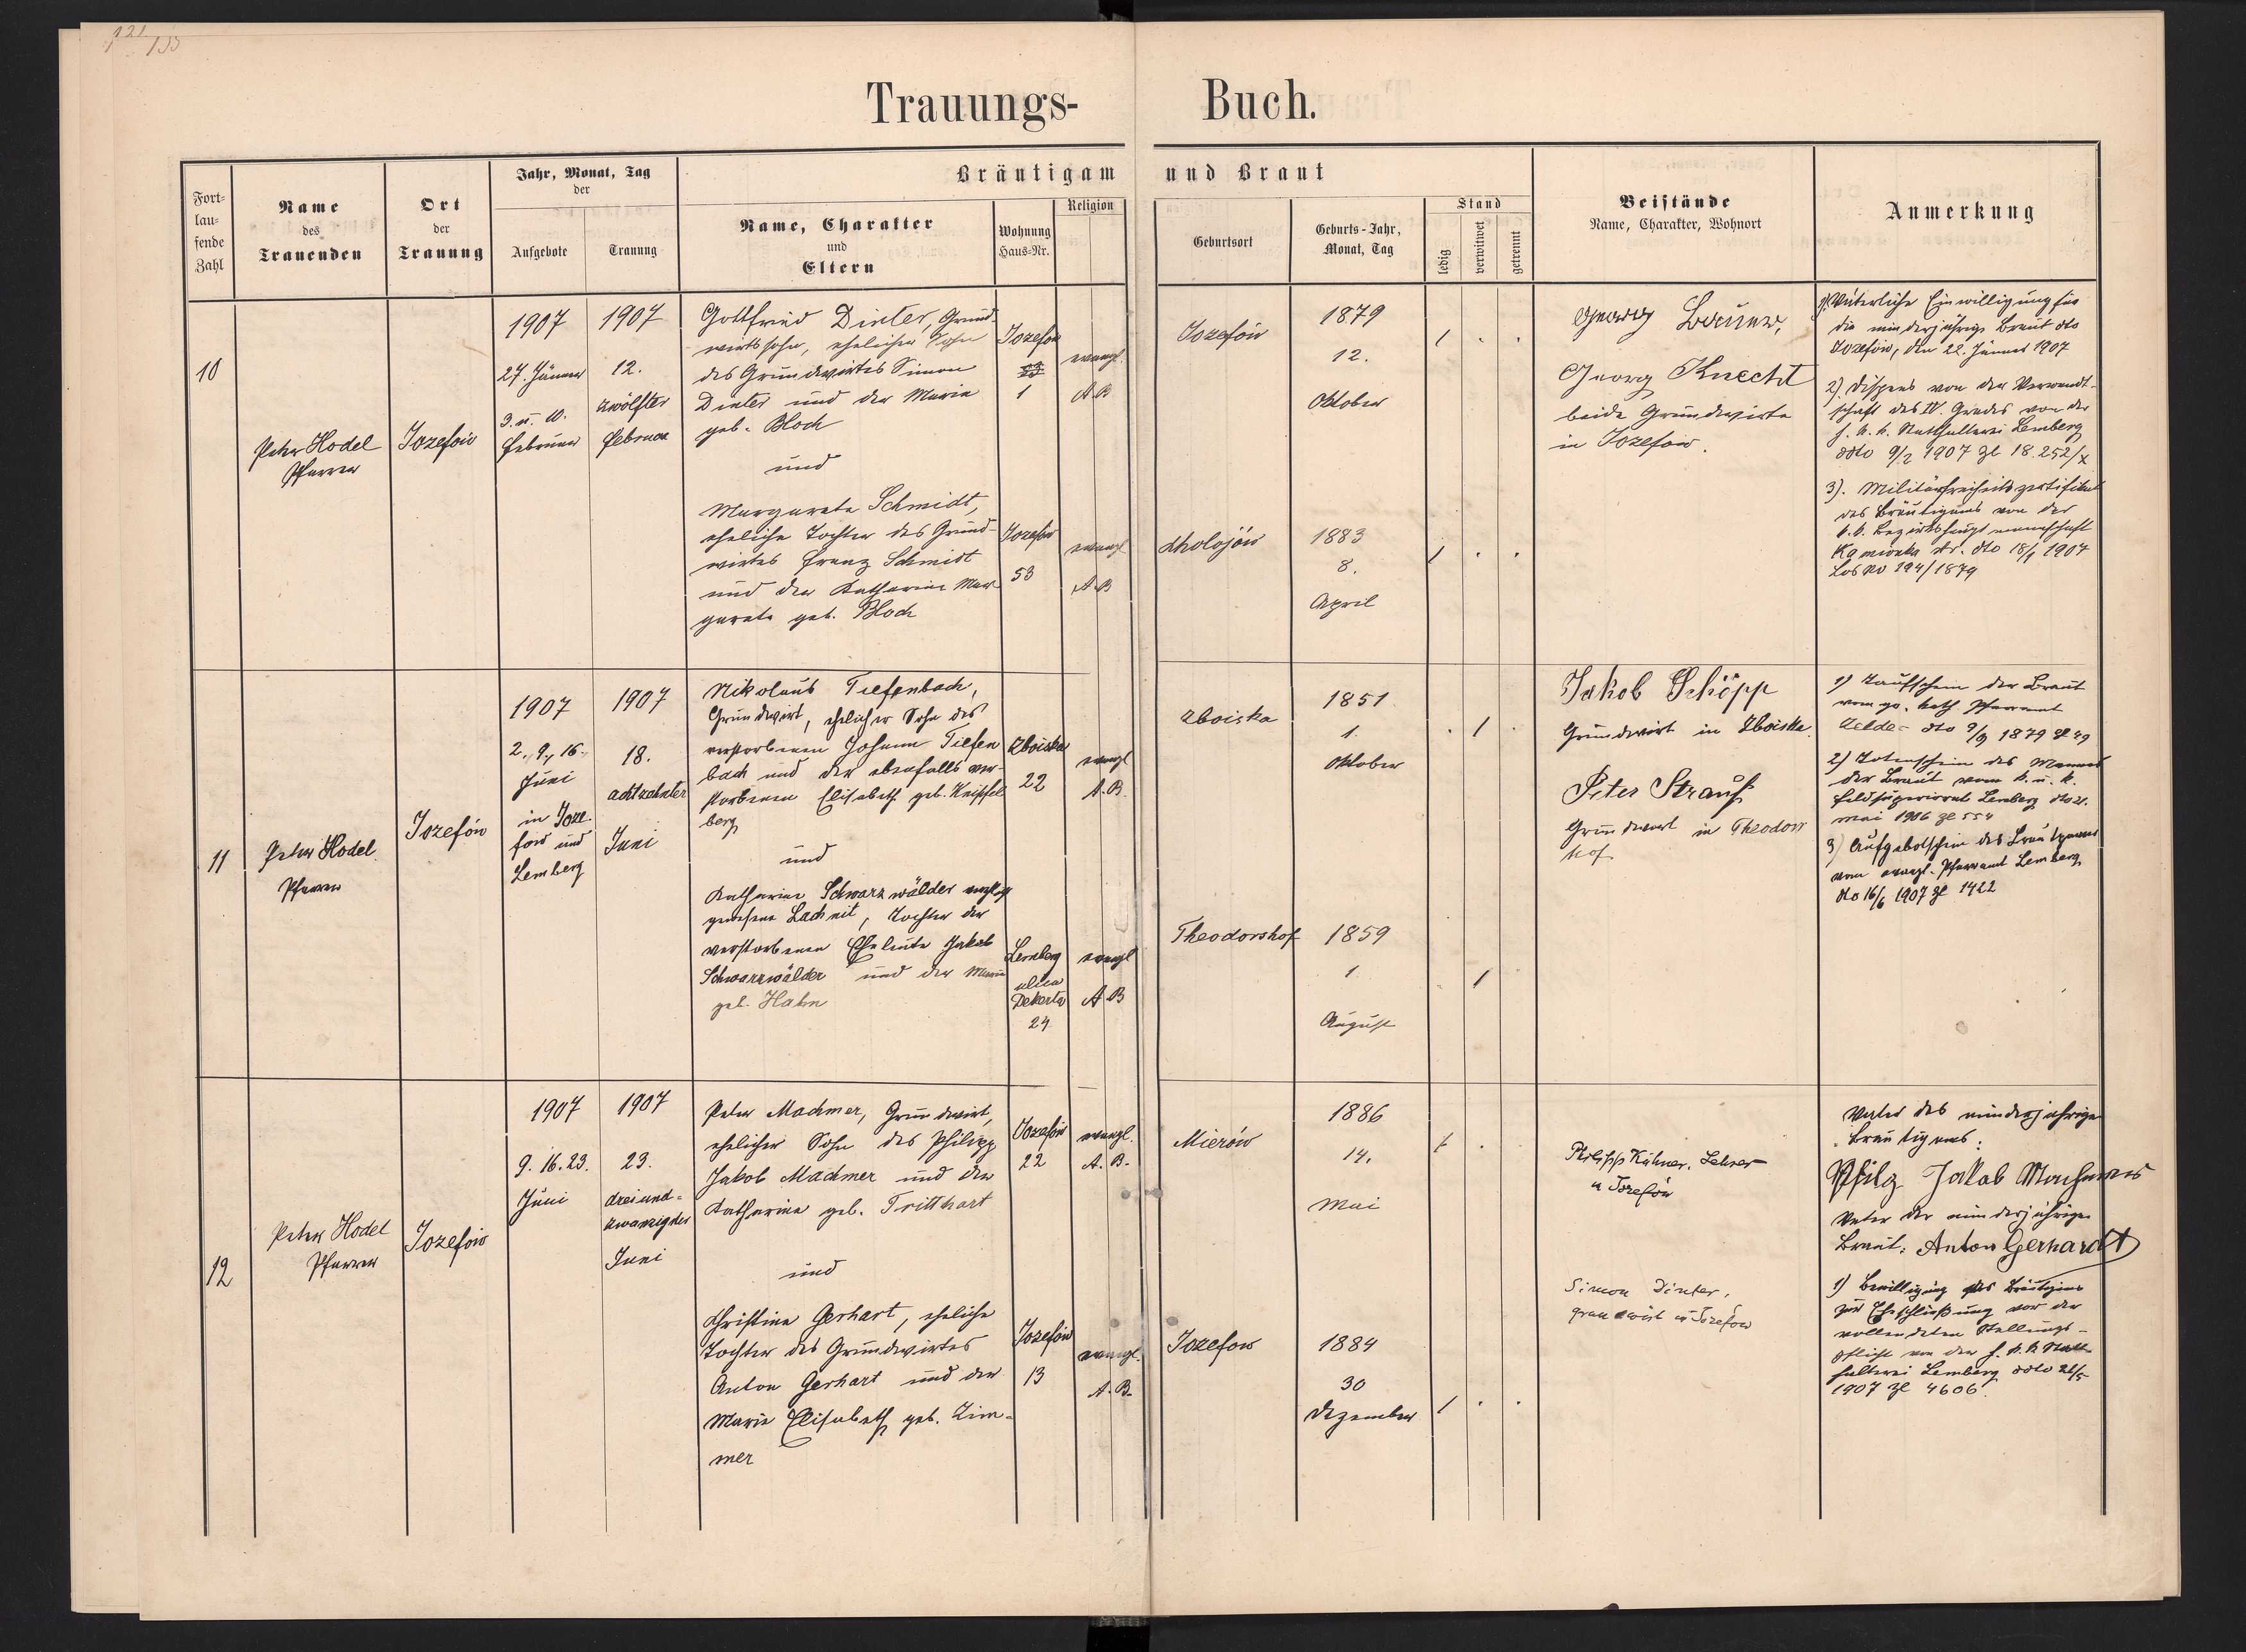 121 133
Trauungs- Buch.
Fort-
lau-
fende
Zahl
Name
des
Trauenden
Ort
der
Trauung
Jahr, Monat, Tag
der
Aufgebote
Trauung
Bräutigam und Braut
Name, Charakter
und
Eltern
Wohnung
Haus-Nr.
Religion
Geburtsort
Geburts-Jahr,
Monat, Tag
Stand
ledig
verwitwet
getrennt
Beistände
Name, Charakter, Wohnort
Anmerkung
10
Peter Hodel
Pfarrer
Jozefów
1907
27. Jänner
3. u. 10.
Februar
1907
12.
zwölfter
Februar
Gottfried Dinter, Grund-
wirtssohn, ehelicher Sohn
des Grundwirtes Simon
Dinter und der Maria
geb. Bloch
und
Margareta Schmidt,
eheliche Tochter des Grund-
wirtes Franz Schmidt
und der Katharina Mar-
gareta geb. Bloch
Jozefow
1
evangl.
A.B
Jozefow
53
evangl
A.B
Jozefów
1879
12.
Oktober
1 . .
Chołojów
1883
8.
April
1 . .
Georg
Georg Knecht
beide Grundwirte
in Jozefow.
1) Väterliche Einwilligung für
die minderjährige Braut dto
Jozefów, den 22. Jänner 1907
2). Dispens von der Verwandt-
schaft des IV. Grades von der
k. k. Statthalterei Lemberg
ddto 9/2 1907 Zl 18.252/X
3). Militärfreiheitszertifikat
des Bräutigams von der
k.k. Bezirkshauptmannschaft
Kamionka str. dto 18/1 1907
Los No 194/1879
11
Peter Hodel
Pfarrer
Jozefów
1907
2., 9., 16.
Juni
in Joze-
fow und
Lemberg
1907
18.
achtzehnter
Juni
Nikolaus Tiefenbach,
Grundwirt, ehelicher Sohn des
verstorbenen Johann Tiefen
bach und der ebenfalls ver-
storbenen Elisabeth geb. Knipfel
berg
und
Katharina Schwarzwälder
gewesene Lachnit, Tochter der
verstorbenen Eheleute Jakob
Schwarzwälder und der Maria
geb. Hahn
Zboiska
22
evangl
A.B.
Lemberg
ulica
Dekerta
24
evangl
A.B
Zboiska
1851
1.
Oktober
. 1 .
Theodorshof
1859
1
August
. 1 .
Jakob Schöpp
Grundwirt in Zboiska.
Peter Strauß
Grundwirt in Theodors
hof
1) Taufschein der Braut
vom gr. kath Pfarramt
dto 9/9 1879 Zl 49
2) Totenschein des Mannes
der Braut vom k. u. k.
Feldsuperiorat Lemberg dto 21.
Mai 1906 Zl 554
3) Aufgebotschein des Brautpaares
vom evangl. Pfarramt Lemberg
dto 16/6 1907 Zl 1422
12
Peter Hodel
Pfarrer
Jozefów
1907
9. 16. 23.
Juni
1907
23.
dreiund-
zwanzigster
Juni
Peter Machmer, Grundwirt,
ehelicher Sohn des Philipp
Jakob Machmer und der
Katharina geb. Tritthart
und
Christine Gerhart, eheliche
Tochter des Grundwirtes
Anton Gerhart und der
Maria Elisabeth geb. Zim-
mer
Jozefów
22
evangl.
A. B.
Jozefów
13
evangl.
A.B.
Mierów
1886
14.
Mai
1 .
Jozefow
1884
30
Dezember
1 . .
Philipp Kühner. Lehrer
in Jozefów
Simon Dinter,
grundwirt in Jozefow
Vater des minderjährigen
Bräutigams:
Philip Jakob Machmer
Vater der minderjährigen
Braut: Anton Gerhardt
1) Bewilligung des Bräutigams
zur Eheschließung vor der
vollendeten Stellungs-
pflicht von der k. k. Statt-
halterei Lemberg ddto 21/5
1907 Zl 4606.